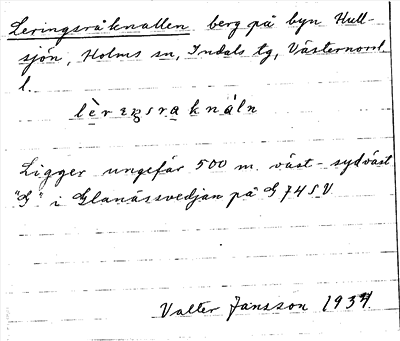 Leringsråknallen berg på byn Hull-
sjön, Holms sn, Indals tg, Västernorrl.
l.
Ligger ungefär 500 m. väst-sydväst
"G" i Glanåssvedjan på G 74 SV
Valter Jansson 1937.